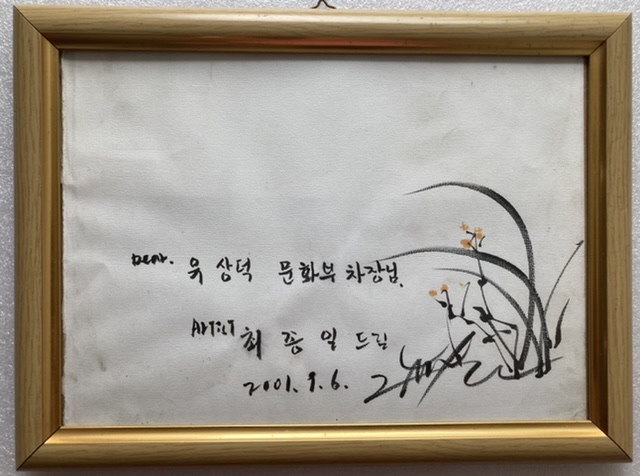 Dear. 육 상덕 문화부 차장님.
ARTiST 최 종 일 드림
2001. 9. 6.